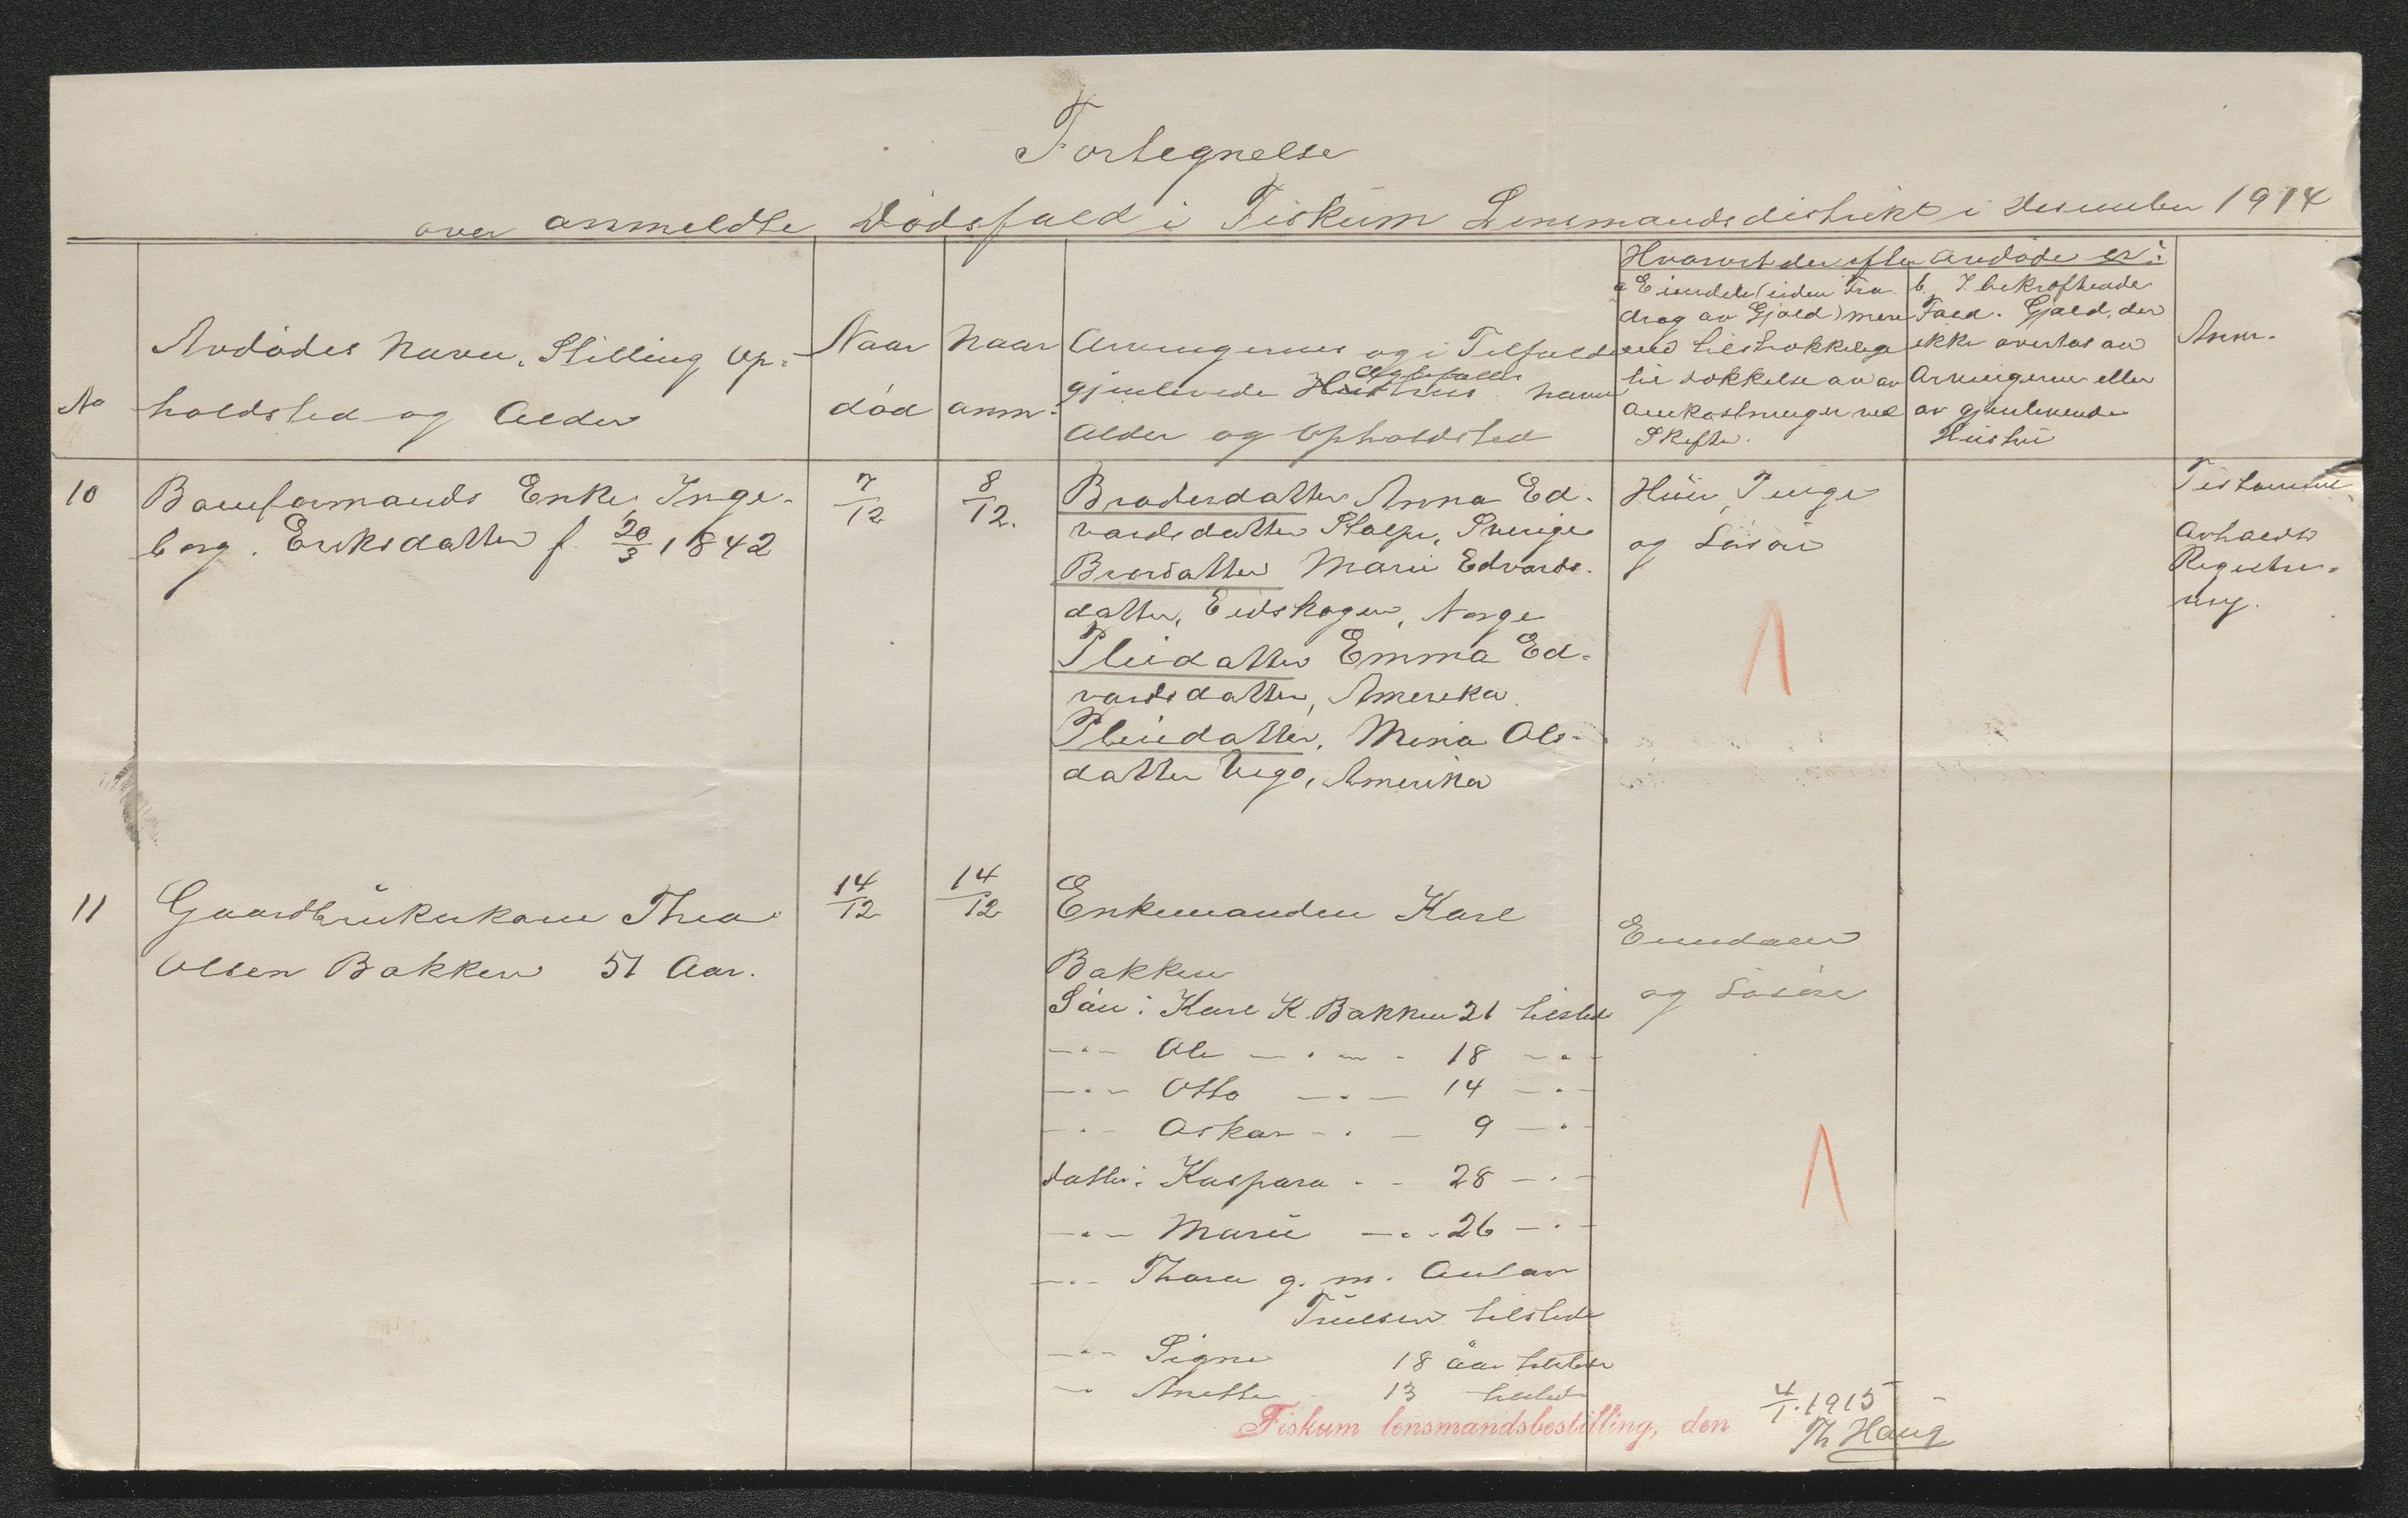 Fortegnelse
over anmeldte Dødsfald i Fiskum Lensmandsdistrikt i December 1914
No
Avdødes Navn, Stilling Op-
holdsted og Alder
Naar
død
Naar
anm.
Arvingernes og i Tilfælde
gjenlevende Ægtefælles Navn
Alder og Opholdsted
Hvorvidt der efter avdøde er:
a Eiendele (uden Fra-
drag av Gjæld) mere
end tilstrækkelige
til Dækkelse av
Omkostninger ved
Skifte.
b. I bekræftende
Fald. Gjæld, der
ikke overtas av
Arvingerne eller
av gjenlevende
Hustru
Anm.
10
Bomformands Enke, Inge-
borg. Eriksdatter f. 20/3 1842
7/12
8/12.
Broderdatter Anna Ed-
vardsdatter Stolpe, Sverige
Brordatter Marie Edvards-
datter, Eidskogen, Norge
Pleiedatter Emma Ed-
vardsdatter, Amerika.
Pleiedatter, Mina Ols-
datter Vego, Amerika
Hus, Penge
og Løsøre
Testamente
Avholdt
Registre-
ring.
11
Gaardbrukerkone Thea
Olsen Bakken 51 Aar.
14/12
14/12
Enkemanden Karl
Bakken
Søn: Karl K. Bakken 21 tilstede
-"- Ole -"- 18 -"-
-"- Otto -"- 14 -"-
-"- Oskar -"- 9 -"-
Datter: Kaspara -"- 28 -"-
-"- Marie -"- 26 -"-
-"- Thora g. m. Anton
Truelsen tilstede
-"- Signe 18 aar tilstede
-"- Anette 13 tilstede
Eiendom
og Løsøre
Fiskum lensmandsbestilling, den 4/1. 1915
Th Haug